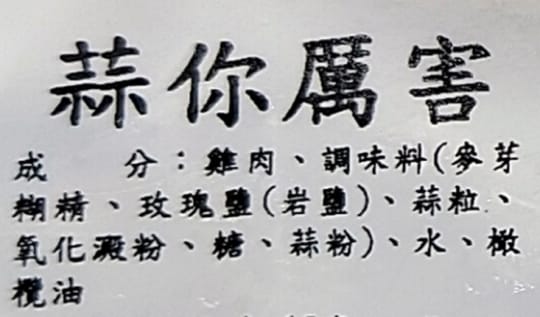 蒜你厲害
成　　分：雞肉、調味料(麥芽
糊精、玫瑰鹽(岩鹽)、蒜粒、
氧化澱粉、糖、蒜粉)、水、橄
欖油